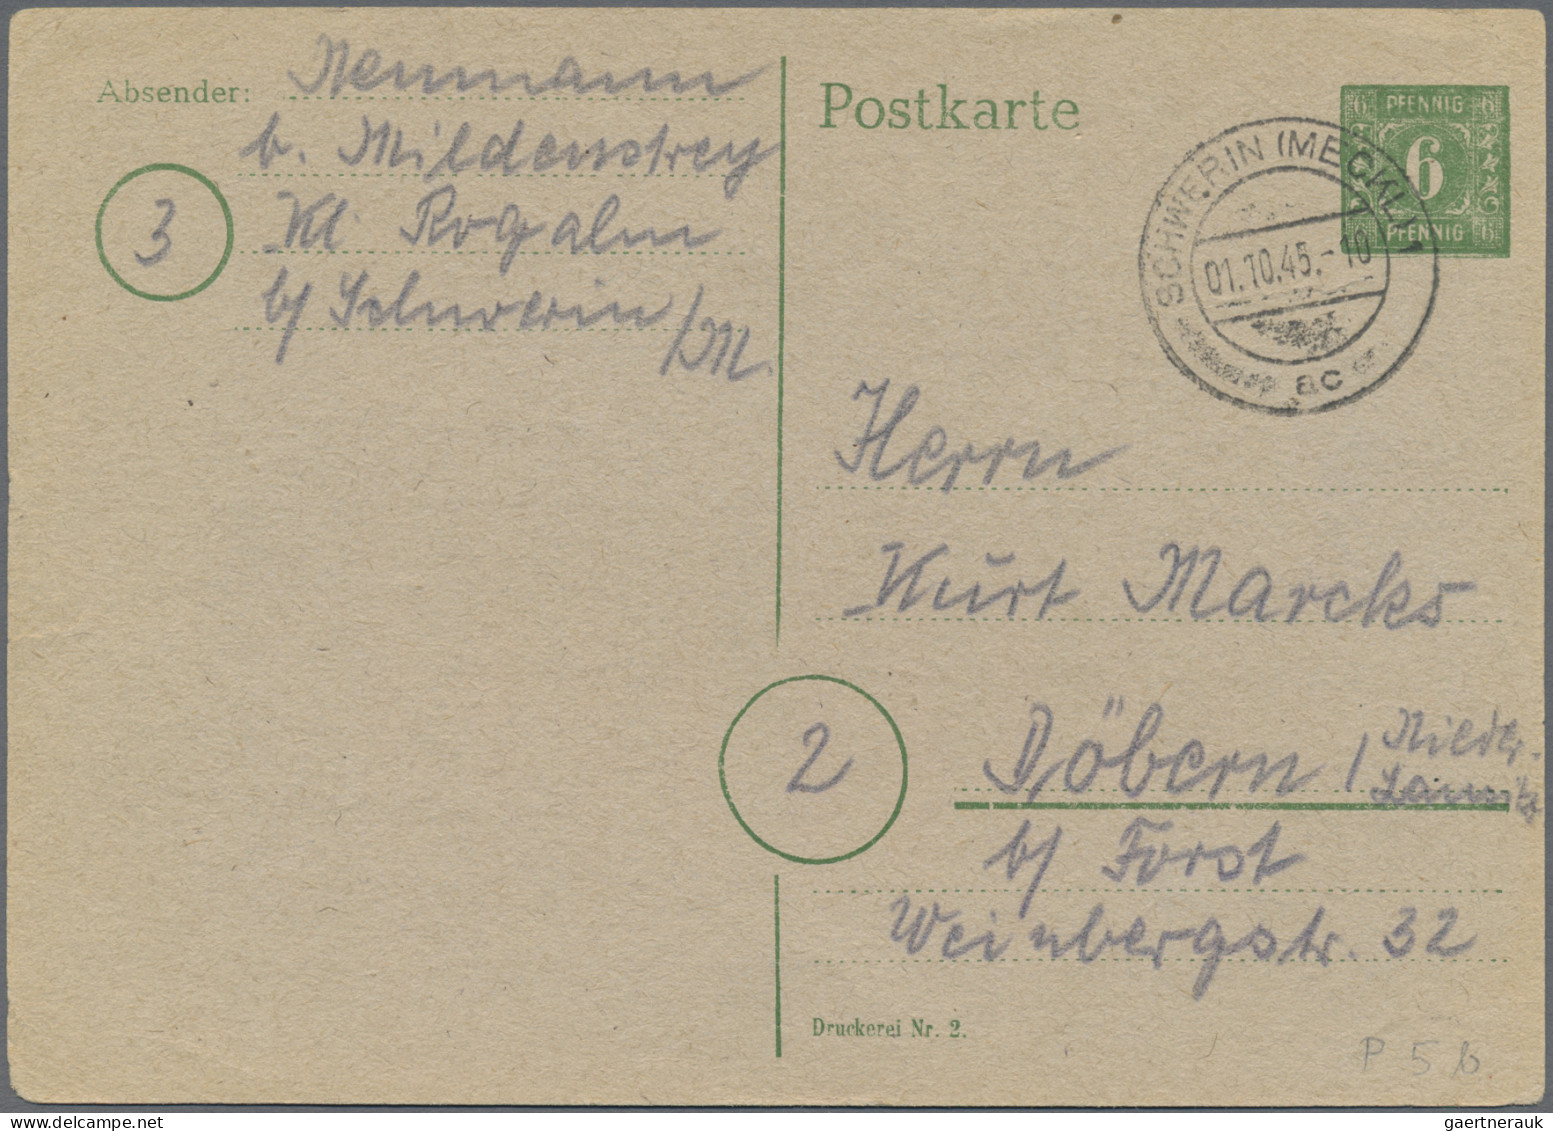 Absender: Neumann
b. Mildenstrey
3
Kl. Rogahn
b/ Schwerin /M.
Postkarte
6 PFENNIG 6
6
6 PFENNIG 6
SCHWERIN (MECKL) 1
01.10.45.-10
ac
Herrn
Kurt Marcks
2
Döbern / Nieder-
Lausitz
b/ Forst
Weinbergstr. 32
Druckerei Nr. 2.
P 5 b
gaertnerauk